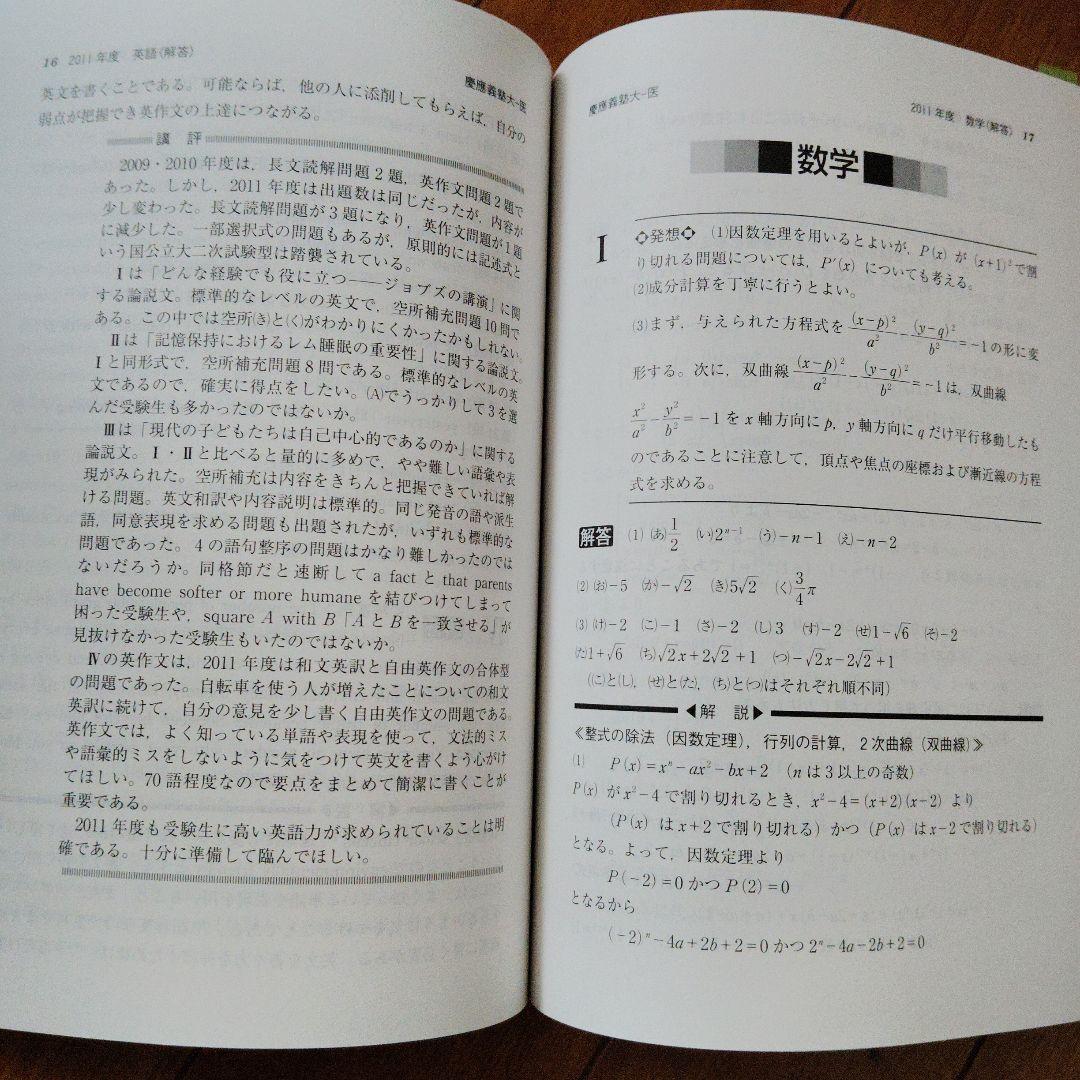 16 2011年度 英語〈解答〉
慶應義塾大-医
英文を書くことである。可能ならば，他の人に添削してもらえば，自分の
弱点が把握でき英作文の上達につながる。
講 評
2009・2010年度は，長文読解問題2題，英作文問題2題で
あった。しかし，2011年度は出題数は同じだったが，内容が
少し変わった。長文読解問題が3題になり，英作文問題が1題
に減少した。一部選択式の問題もあるが，原則的には記述式と
いう国公立大二次試験型は踏襲されている。
Ⅰは「どんな経験でも役に立つ――ジョブズの講演」に関
する論説文。標準的なレベルの英文で，空所補充問題10問で
ある。この中では空所(き)と(く)がわかりにくかったかもしれない。
Ⅱは「記憶保持におけるレム睡眠の重要性」に関する論説文。
Ⅰと同形式で，空所補充問題8問である。標準的なレベルの英
文であるので，確実に得点をしたい。(A)でうっかりして3を選
んだ受験生も多かったのではないか。
Ⅲは「現代の子どもたちは自己中心的であるのか」に関する
論説文。Ⅰ・Ⅱと比べると量的に多めで，やや難しい語彙や表
現がみられた。空所補充は内容をきちんと把握できていれば解
ける問題。英文和訳や内容説明は標準的。同じ発音の語や派生
語，同意表現を求める問題も出題されたが，いずれも標準的な
問題であった。4の語句整序の問題はかなり難しかったのでは
ないだろうか。同格節だと速断して a fact と that parents
have become softer or more humane を結びつけてしまって
困った受験生や，square A with B「AとBを一致させる」が
見抜けなかった受験生もいたのではないか。
Ⅳの英作文は，2011年度は和文英訳と自由英作文の合体型
の問題であった。自転車を使う人が増えたことについての和文
英訳に続けて，自分の意見を少し書く自由英作文の問題である。
英作文では，よく知っている単語や表現を使って，文法的ミス
や語彙的ミスをしないように気をつけて英文を書くよう心がけ
てほしい。70語程度なので要点をまとめて簡潔に書くことが
重要である。
2011年度も受験生に高い英語力が求められていることは明
確である。十分に準備して臨んでほしい。
慶應義塾大-医
2011年度 数学〈解答〉 17
数学
Ⅰ
◇発想◇ (1)因数定理を用いるとよいが，P(x) が (x+1)² で割
り切れる問題については，P′(x) についても考える。
(2)成分計算を丁寧に行うとよい。
(3)まず，与えられた方程式を (x−p)²/a² − (y−q)²/b² = −1 の形に変
形する。次に，双曲線 (x−p)²/a² − (y−q)²/b² = −1 は，双曲線
x²/a² − y²/b² = −1 を x 軸方向に p，y 軸方向に q だけ平行移動したも
のであることに注意して，頂点や焦点の座標および漸近線の方程
式を求める。
解答 (1) (あ) 1/2 (い) 2ⁿ⁻¹ (う) −n−1 (え) −n−2
(2) (お) −5 (か) −√2 (き) 5√2 (く) 3/4 π
(3) (け) −2 (こ) −1 (さ) −2 (し) 3 (す) −2 (せ) 1−√6 (そ) −2
(た) 1+√6 (ち) √2x+2√2+1 (つ) −√2x−2√2+1
((こ)と(し)，(せ)と(た)，(ち)と(つ)はそれぞれ順不同)
◀解 説▶
≪整式の除法（因数定理），行列の計算，2次曲線（双曲線）≫
(1) P(x)=xⁿ−ax²−bx+2 （n は3以上の奇数）
P(x) が x²−4 で割り切れるとき，x²−4=(x+2)(x−2) より
(P(x) は x+2 で割り切れる) かつ (P(x) は x−2 で割り切れる)
となる。よって，因数定理より
P(−2)=0 かつ P(2)=0
となるから
(−2)ⁿ−4a+2b+2=0 かつ 2ⁿ−4a−2b+2=0